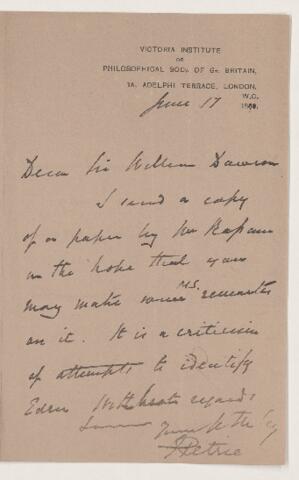 VICTORIA INSTITUTE
OR
PHILOSOPHICAL SOCY. OF GT. BRITAIN,
7A, ADELPHI TERRACE, LONDON,
W.C.
June 17
Dear Sir William Dawson
I send a copy
of a paper by Mr Rassam
in the hope that you
may make some M.S. remarks
on it. It is a criticism
of attempts to identify
Eden With best regards
Petrie